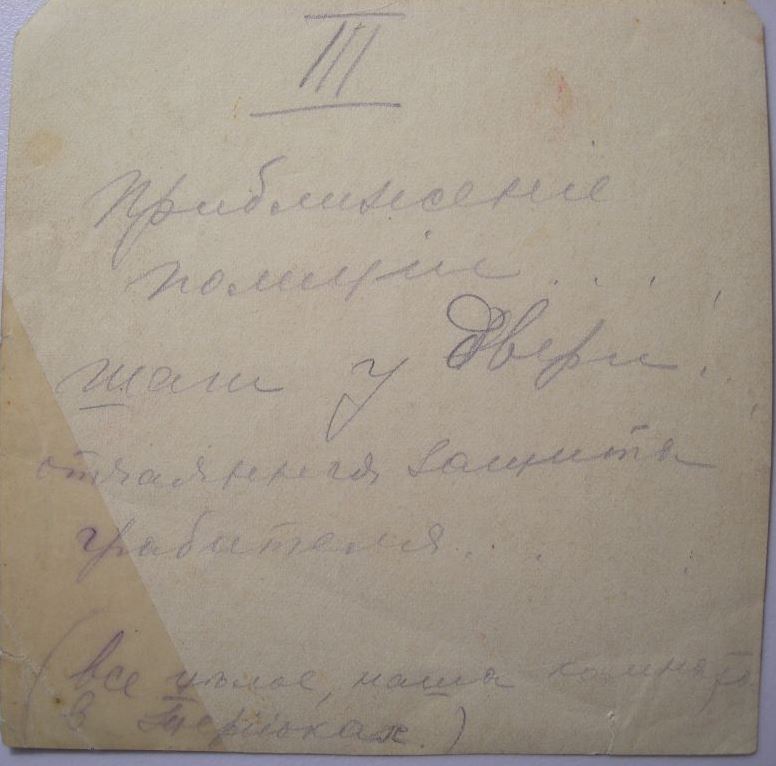 III
Приближение
полиціи . . . .
шаги у двери. . .
отчаянная защита
грабителя. . .
(все цѣлое, наша комната
в Териоках.)